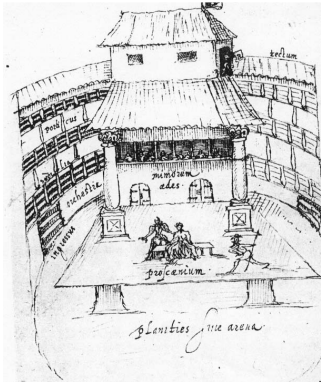 tectum
porticus
sedilia
orchestra
ingressus
mimorum
ædes.
proscænium
planities siue arena